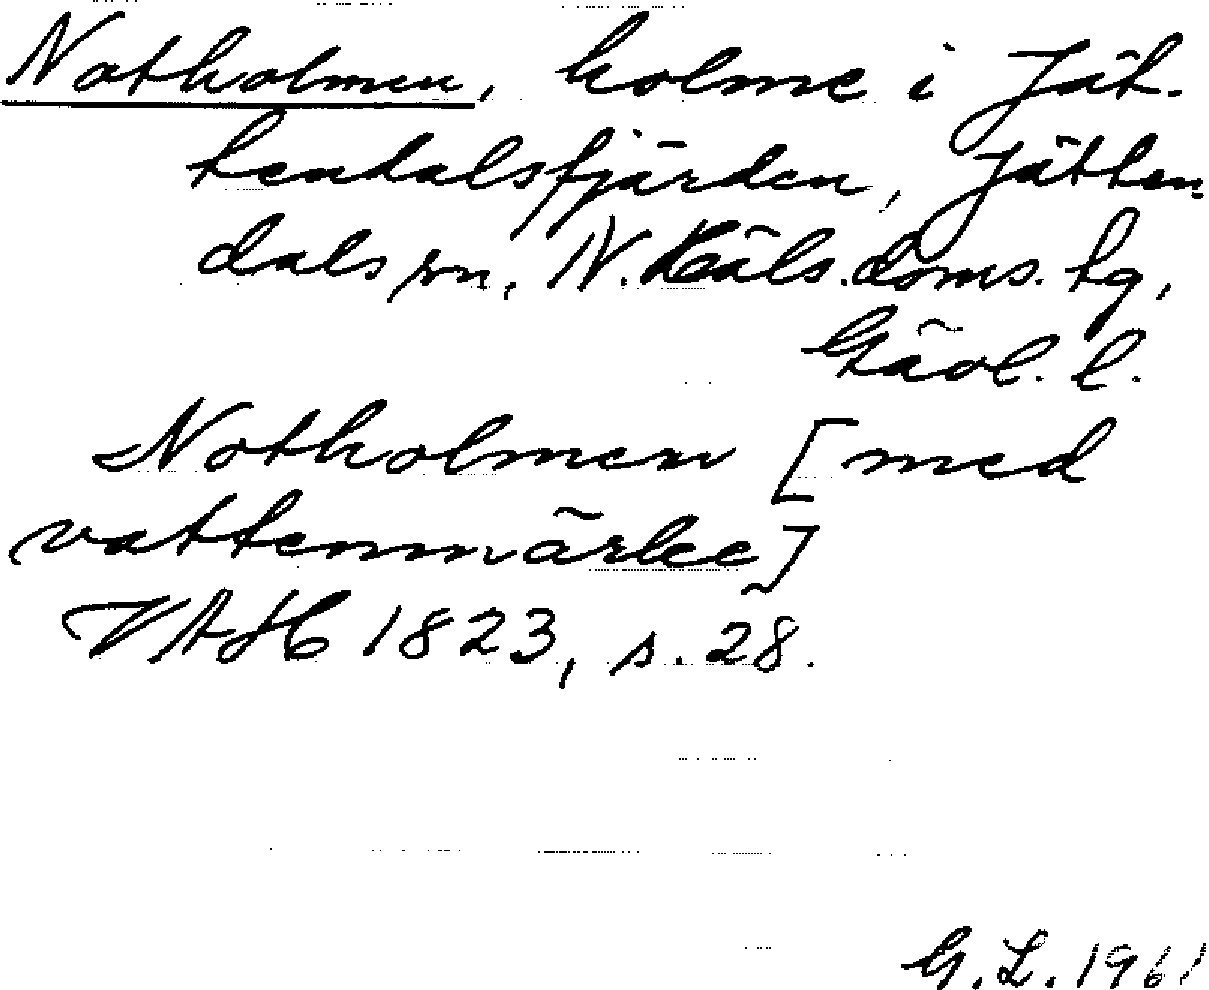 Notholmen, holme i Jät-
tendalsfjärden, Jätten
dals sn, N. Häls. doms. hg,
Gävl. l.
Notholmen [med
vattenmärke]
VAH 1823, s. 28.
G. L. 1961